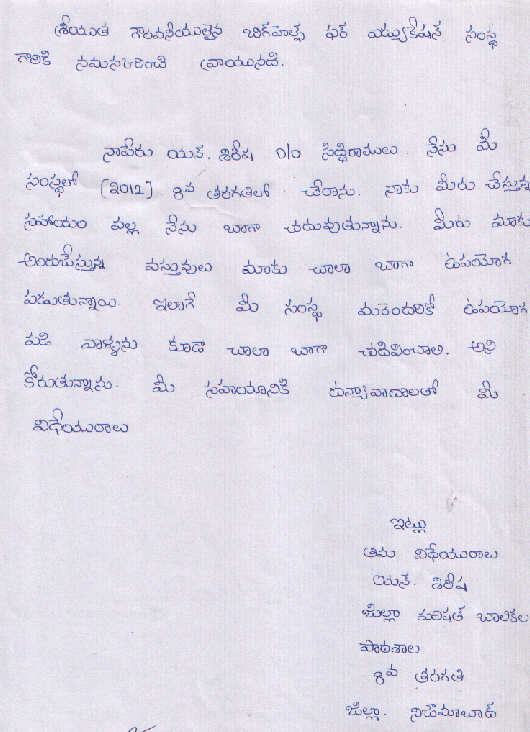 శ్రీయుత గౌరవనీయులైన బిగ్‌హెల్ప్ ఫర్ ఎడ్యుకేషన్ సంస్థ
గారికి నమస్కరించి వ్రాయునది.
నాపేరు యస్. శిరీష D/O సిద్దిరాములు. నేను మీ
సంస్థలో (2012) 8వ తరగతిలో చేరాను. నాకు మీరు చేస్తున్న
సహాయం వల్ల నేను బాగా చదువుతున్నాను. మీరు మాకు
అందచేస్తున్న వస్తువులు మాకు చాలా బాగా ఉపయోగ
పడుతున్నాయి. ఇలాగే మీ సంస్థ మరెందరికో ఉపయోగ
పడి వాళ్ళను కూడా చాలా బాగా చదివించాలి. అని
కోరుతున్నాను. మీ సహయానికి ధన్యావాదాలతో మీ
విధేయురాలు
ఇట్లు
తమ విధేయురాలు
యస్. శిరీష
జిల్లా పరిషత్ బాలికల
పాఠశాల
8వ తరగతి
జిల్లా. నిజామాబాద్